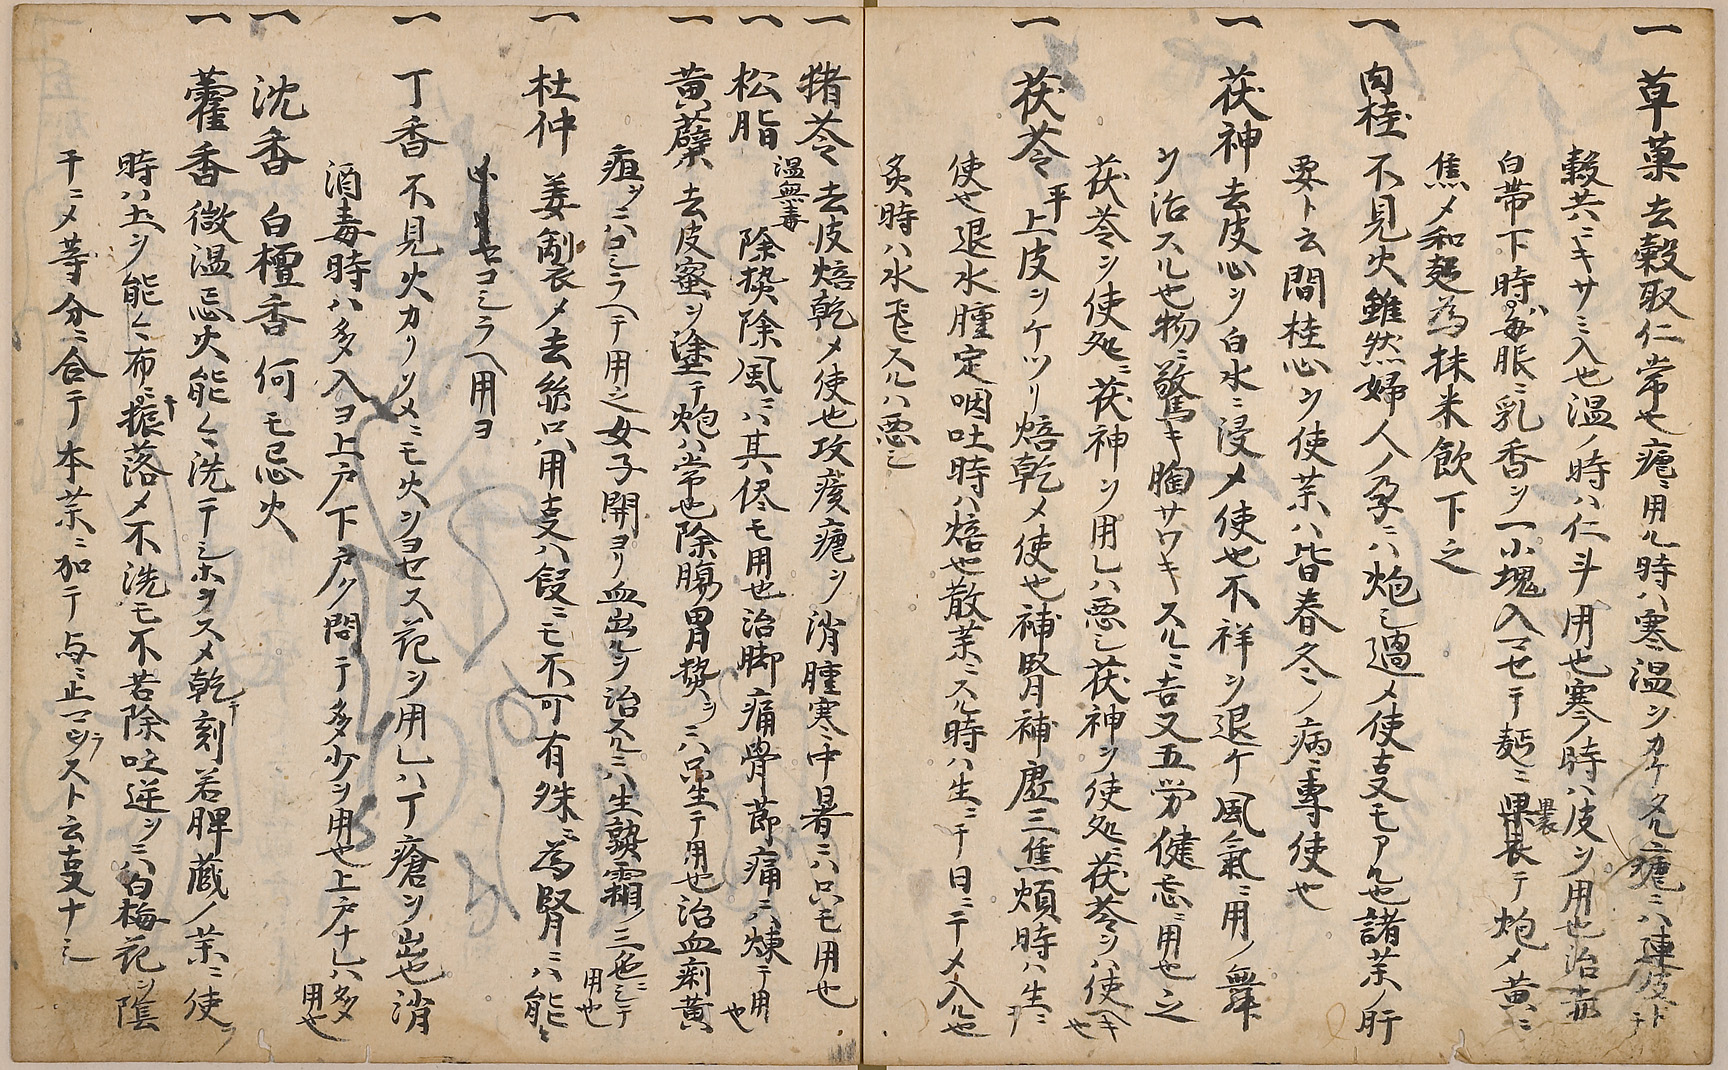 一 草菓 去穀取仁常也瘧ニ用ル時ハ寒温ヲカケタル瘧ニハ連皮ト
穀共ニキサミ入也温ノ時ハ仁斗用也寒ノ時ハ皮ヲ用也治赤
白帯下時ハ毎脹ニ乳香ヲ一小塊入マセテ麺ニ裹テ炮メ黄ニ
焦メ和麺為抹米飲下之
一 肉桂 不見火雖然婦人ノ孕ニハ炮シ過メ使支モアル也諸薬ノ肝
要ト云間桂心ヲ使薬ハ皆春冬ノ病ニ專使也
一 茯神 去皮心ヲ白水ニ浸メ使也不祥ヲ退ケ風氣ニ用ノ舞
ヲ治スル也物ニ驚キ胸サワキスルニ吉又五労健忘ニ用也之
茯苓ヲ使処ニ茯神ヲ用レハ悪シ茯神ヲ使処ニ茯苓ヲハ使ヘキ也
一 茯苓 平 上皮ヲケツリ焙乾メ使也補腎補虚三焦煩時ハ生ニ
使也退水腫定咽吐時ハ焙也散薬ニスル時ハ生ニテ日ニテメ入ル也
炙時ハ水飛スルハ悪シ
一 猪苓 去皮焙乾メ使也攻痎瘧ヲ消腫寒中暑ニハ只モ用也
一 松脂 温無毒 除熱除風ニハ其侭モ用也治脚痛骨節痛ニハ煉テ用也
一 黄蘗 去皮蜜ヲ塗テ炮ハ常也除腸胃熱ヲニハ只生テ用也治血痢黄
疸ヲニハコシラヘテ用之女子開ヨリ血出ルヲ治スルニハ生熟霜ノ三色ニシテ用也
一 杜仲 姜制衣メ去糸只用支ハ假ニモ不可有殊ニ為腎ニハ能ニ
セコシラヘ用ヨ
一 丁香 不見火カリソメニモ火ヲヨセス花ヲ用レハ丁瘡ヲ出也消
酒毒時ハ多入ヨ上戸下戸ヲ問テ多少ヲ用也上戸ナレハ多用也
一 沈香 白檀香 何モ忌火
一 藿香 微温忌火能々洗テシホヲスメ乾テ刻若脾蔵ノ薬ニ使
時ハ土ヲ能々布ニ振落メ不洗モ不若除吐逆ヲニハ白梅花ヲ陰
干ニメ等分ニ合テ本薬ニ加テ与ニ止マラスト云支ナシ